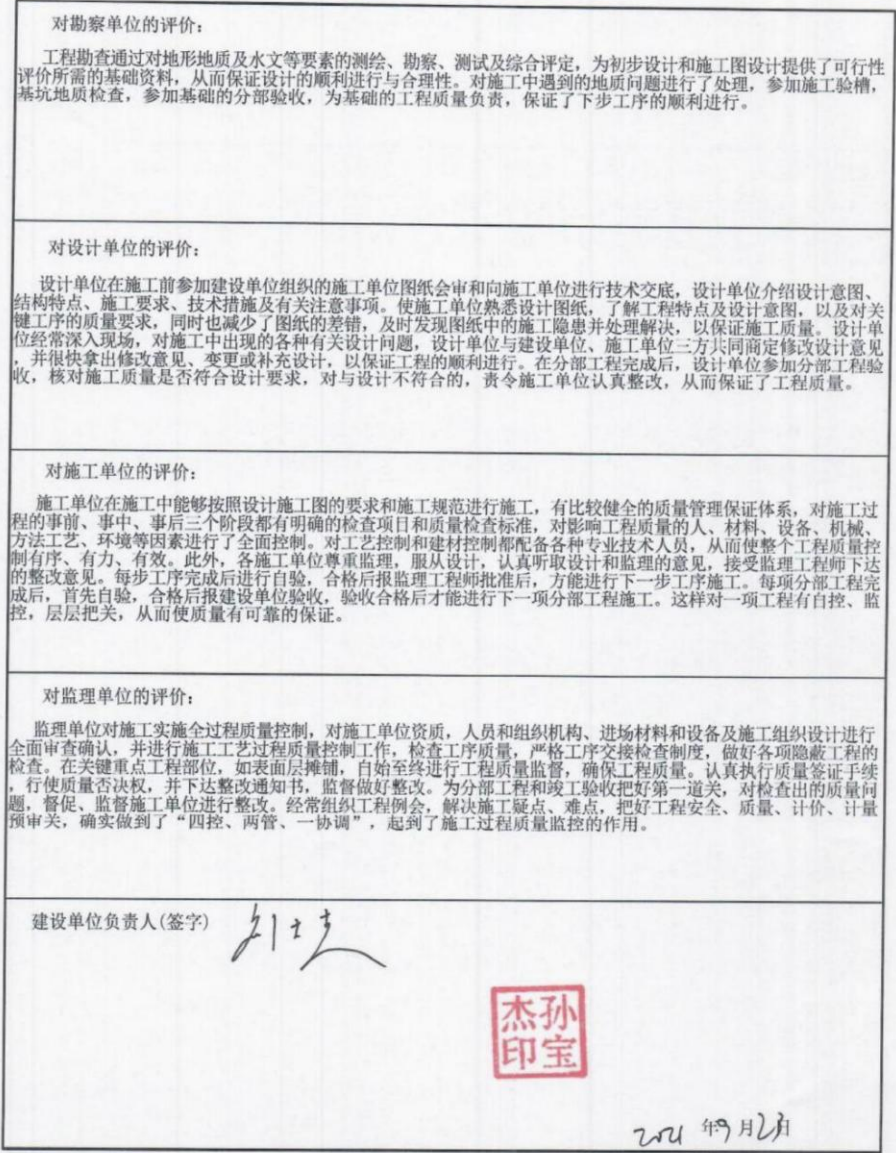 对勘察单位的评价：
工程勘查通过对地形地质及水文等要素的测绘、勘察、测试及综合评定，为初步设计和施工图设计提供了可行性
评价所需的基础资料，从而保证设计的顺利进行与合理性。对施工中遇到的地质问题进行了处理，参加施工验槽，
基坑地质检查，参加基础的分部验收，为基础的工程质量负责，保证了下步工序的顺利进行。
对设计单位的评价：
设计单位在施工前参加建设单位组织的施工单位图纸会审和向施工单位进行技术交底，设计单位介绍设计意图、
结构特点、施工要求、技术措施及有关注意事项。使施工单位熟悉设计图纸，了解工程特点及设计意图，以及对关
键工序的质量要求，同时也减少了图纸的差错，及时发现图纸中的施工隐患并处理解决，以保证施工质量。设计单
位经常深入现场，对施工中出现的各种有关设计问题，设计单位与建设单位、施工单位三方共同商定修改设计意见
，并很快拿出修改意见、变更或补充设计，以保证工程的顺利进行。在分部工程完成后，设计单位参加分部工程验
收，核对施工质量是否符合设计要求，对与设计不符合的，责令施工单位认真整改，从而保证了工程质量。
对施工单位的评价：
施工单位在施工中能够按照设计施工图的要求和施工规范进行施工，有比较健全的质量管理保证体系，对施工过
程的事前、事中、事后三个阶段都有明确的检查项目和质量检查标准，对影响工程质量的人、材料、设备、机械、
方法工艺、环境等因素进行了全面控制。对工艺控制和建材控制都配备各种专业技术人员，从而使整个工程质量控
制有序、有力、有效。此外，各施工单位尊重监理，服从设计，认真听取设计和监理的意见，接受监理工程师下达
的整改意见。每步工序完成后进行自验，合格后报监理工程师批准后，方能进行下一步工序施工。每项分部工程完
成后，首先自验，合格后报建设单位验收，验收合格后才能进行下一项分部工程施工。这样对一项工程有自控、监
控，层层把关，从而使质量有可靠的保证。
对监理单位的评价：
监理单位对施工实施全过程质量控制，对施工单位资质，人员和组织机构、进场材料和设备及施工组织设计进行
全面审查确认，并进行施工工艺过程质量控制工作，检查工序质量，严格工序交接检查制度，做好各项隐蔽工程的
检查。在关键重点工程部位，如表面层摊铺，自始至终进行工程质量监督，确保工程质量。认真执行质量签证手续
，行使质量否决权，并下达整改通知书，监督做好整改。为分部工程和竣工验收把好第一道关，对检查出的质量问
题，督促、监督施工单位进行整改。经常组织工程例会，解决施工疑点、难点，把好工程安全、质量、计价、计量
预审关，确实做到了“四控、两管、一协调”，起到了施工过程质量监控的作用。
建设单位负责人(签字)
孙宝
杰印
2021 年9月23日